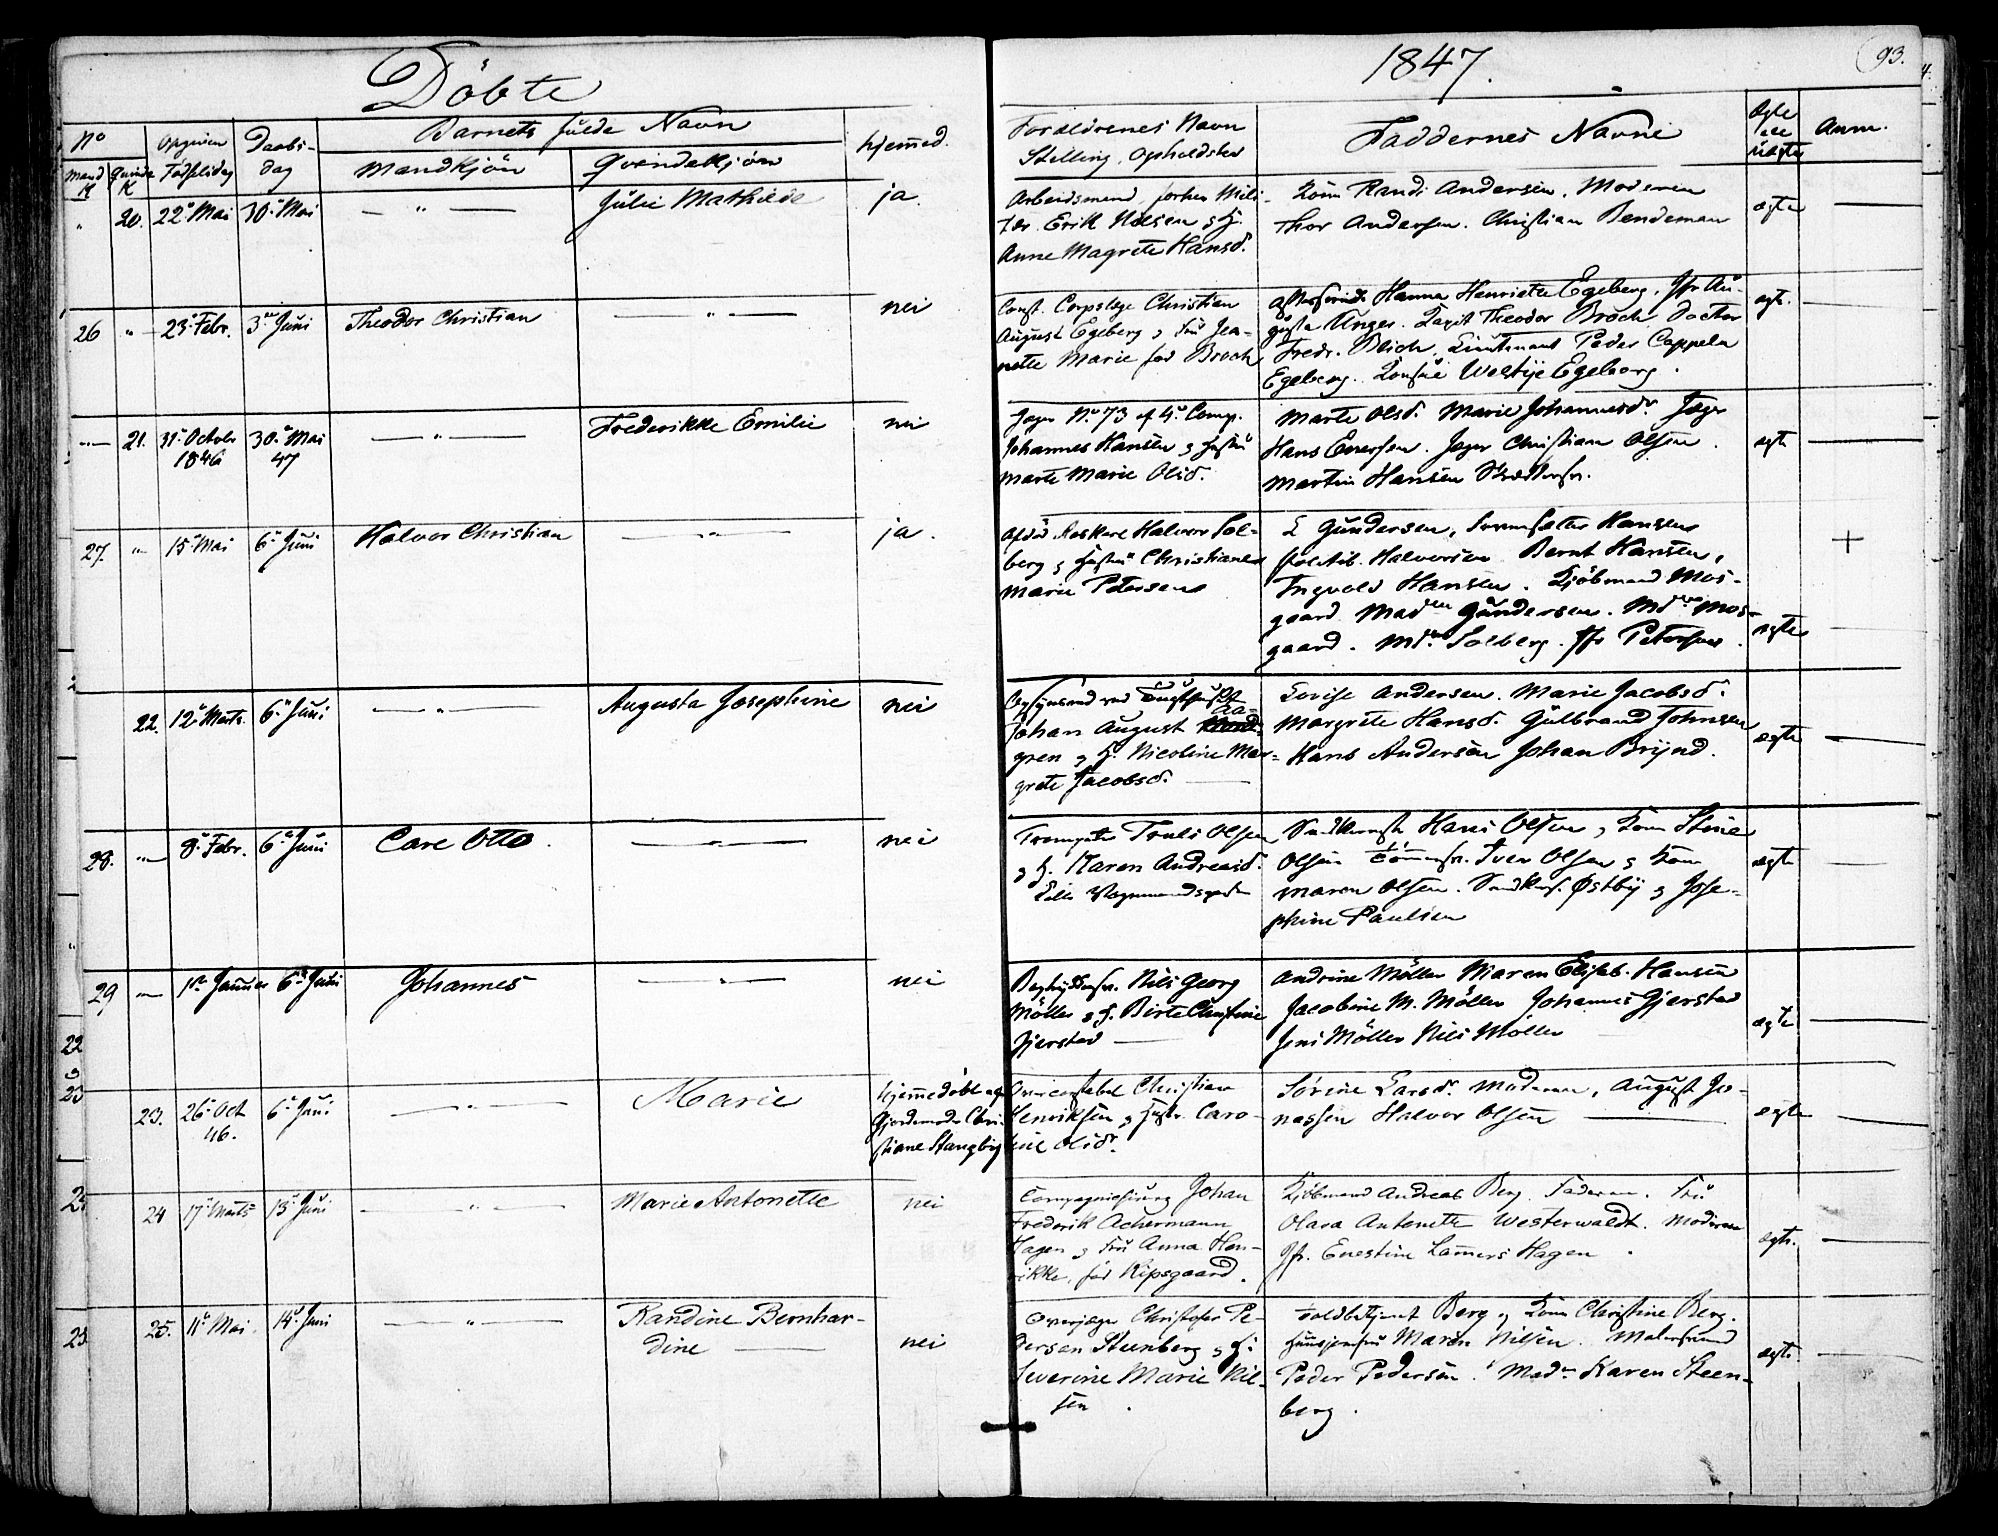 Döbte
1847.
93.
No
Opgiven Födselsdag
Daabsdag
Barnets fulde Navn
hjemmed.
Forældrenes Navn
Stilling, Opholdsted
Faddernes Navne
Ægte
Anm.
Mand K
Qvinde K
Mandkjön
Qvindekjön
20. 22de Mai 30te Mai — " — Julie Mathilde ja.
Arbeidsmand, forhen Mili-
tær Erik Nilsen og H.
Anne Magrete Hansd.
Kone Randi Andersen. Moderen
Thor Andersen. Christian Bendeman
ægte
26 " 23de Febr. 3die Juni Theodor Christian — " — nei
Const. Corpslæge Christian
August Egeberg og Frue Jea-
nette Marie fød Broch
Hanna Henriette Egeberg, Jfr. Au-
gusta Unger. Capit Theodor Broch. Doctor
Fredr. Blich. Lieutenant Peder Cappelen
Egeberg. Westye Egeberg.
ægte.
" 21. 31te Octobr 1846 30te Mai 47 — " — Frederikke Emilie nei
Jæger No 73 af 4de Comp.
Johannes Hansen og Hustru
Marte Marie Olsd.
Marte Olsd. Marie Johannesdr. Jæger
Hans Eversen. Jæger Christian Olsen.
Martin Hansen
ægte
27. " 15de Mai 6te Juni Halvor Christian — " — ja.
Halvor Sol-
berg og Hustru Christiane
Marie Petersen
L Gundersen, Hansen
Halvorsen Bernt Hansen,
Ingvald Hansen. Kjöbmand Mos-
gaard Madm Gundersen. Mdme Mos-
gaard. Mdme Solberg. Jfr Petersen.
ægte
+
22. 12te Marts 6te Juni — " — Augusta Josephine nei
Opsynsmd ved Tugthuset
Johan August Aa-
gren og H. Nicoline Mar-
grete Jacobsd. —
Lovise Andersen. Marie Jacobsd.
Margrete Hansd. Gulbrand Johnsen
Hans Andersen Johan Brynd.
ægte
28. " 8de Febr. 6te Juni Carl Otto. — " — nei
Trompeter Truls Olsen
og H. Karen Andreasd.
Lille Vognmandsgaden
Hans Olsen og Kone Stine
Olsen Tömmerm. Iver Olsen og Kone
Maren Olsen. Østby og Jose-
phine Paulsen
ægte
29 " 1ste Januar 6te Juni Johannes — " — nei
Nils Georg
Möller og H. Birte Christine
Gjerstad —
Andrine Möller Maren Elisab. Hansen
Jacobine M. Möller Johannes Gjerstad
Jens Möller Nils Möller —
ægte
23. 26de Oct 46. 6te Juni — " — Marie
hjemmedøbt af
Gjordemoder Chri-
stiane Stangbye
Overconstabel Christian
Henriksen og Hustr. Caro-
line Olsdr.
Sörine Larsdr. Moderen, August Jo-
nassen Halvor Olsen —
ægte
24 17de Marts 13de Juni — " — Marie Antonette nei
Compagniechirurg Johan
Frederik Achermann
Hagen og Frue Anna Hen-
rikke, född Ripsgaard.
Kjöbmand Andreas Berg. Faderen. Frue
Olava Antonette Westerwaldt. Moderen
Jfr. Enestine Lammers Hagen.
ægte.
25. 11te Mai 14de Juni — " — Randine Bernhar-
dine — nei
Overjæger Christofer Pe-
dersen Steenberg og H.
Severine Marie Niel-
sen.
Toldbetjent Berg og Kone Christine Berg.
Maren Nilsen. Malersvend
Peder Pedersen. Madm Karen Steen-
berg.
ægte.